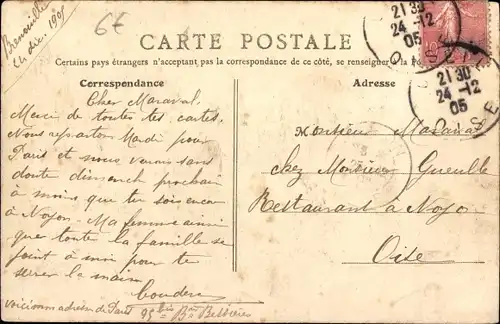 Brenouille
24 déc. 1905
6€
CARTE POSTALE
Certains pays étrangers n'acceptent pas la correspondance de ce côté, se renseigner à la Po
Correspondance
Adresse
21 30
24 -12
05
21 30
24 -12
05
OISE
Cher Maraval,
Merci de toutes tes cartes.
Nous repartons Mardi pour
Paris et nous verrons sans
doute dimanch prochain
à moins que tu sois encore
à Noyon - Ma femme ainsi
que toute la famille se
joint à moi pour te
serrer la main
Couderc
Voici mon adresse de Paris 95 bis Bd Bessières
Monsieur Maraval
chez Monsieur Gueulle
Restaurant à Noyon
Oise